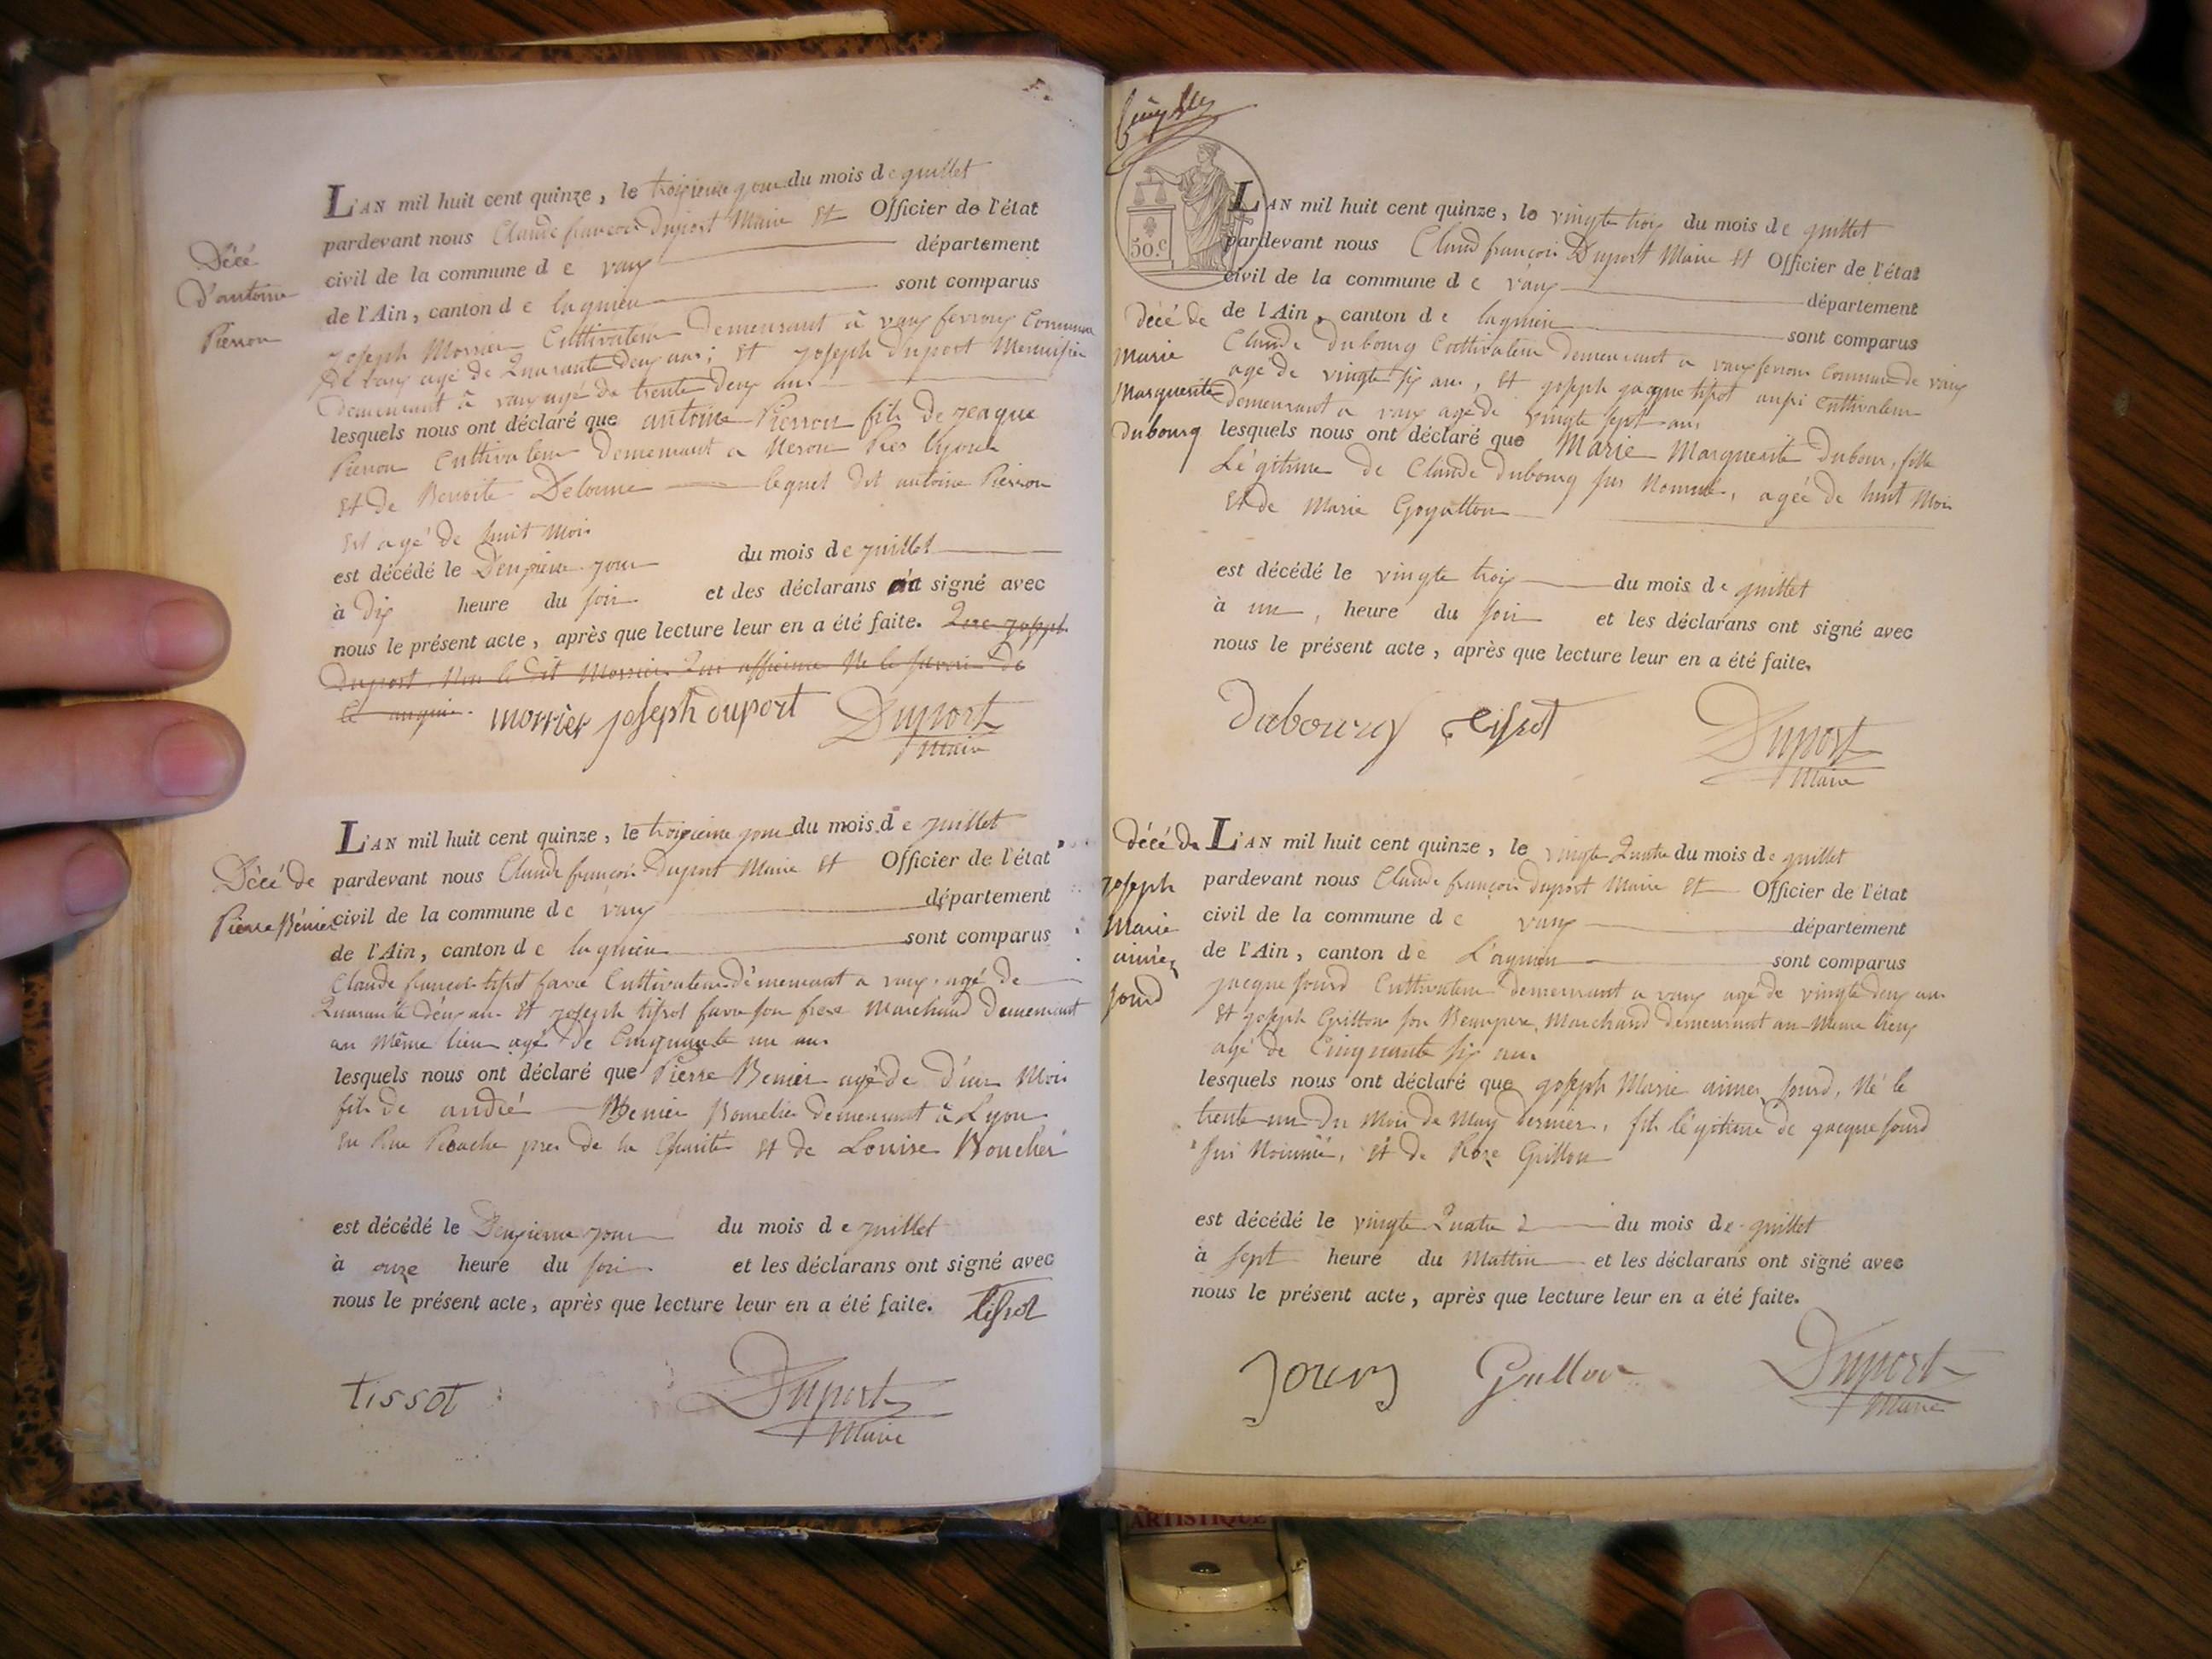 Décé
d'antoine
Pierron
L'AN mil huit cent quinze, le troisieme jour du mois de juillet
pardevant nous Claude francois Duport Maire Et Officier de l'état
civil de la commune de vaux département
de l'Ain, canton de lagnieu sont comparus
joseph Morrier Cultivateur Demeurant à vaux fevroux Commune
de vaux agé de Quarante deux ans; Et joseph Duport Menuisier
demeurant à vaux agé de trente deux ans
lesquels nous ont déclaré que antoine Pierron fils de jeaque
Pierron Cultivateur demeurant a près lyon
Et de Benoite Delorme lequel dit antoine Pierron
Est agé de huit Mois
est décédé le Deuxieme jour du mois de juillet
à dix heure du soir et des déclarans signé avec
nous le présent acte, après que lecture leur en a été faite. joseph
duport, Non le dit Morrier Qui afficirme Ne le savoir de
ce
morrier joseph duport Duport
Maire
Décé de
Pierre Bénier
L'AN mil huit cent quinze, le troisieme jour du mois de juillet
pardevant nous Claude francois Duport Maire Et Officier de l'état
civil de la commune de vaux département
de l'Ain, canton de lagnieu sont comparus
Claude francois tissot favre Cultivateur démeurant a vaux, agé de
Quarante déux ans Et joseph tissot favre son frere Marchand Demeurant
au Même lieu agé de Cinquante un ans
lesquels nous ont déclaré que Pierre Benier agé de d'un Mois
fils de andré Benier Bourelier demeurant à Lyon
en Rue Perache pres de la Charité Et de Louise Bouchér
est décédé le Deuxieme jour du mois de juillet
à onze heure du soir et les déclarans ont signé avec
nous le présent acte, après que lecture leur en a été faite. tissot
tissot Duport
Maire
50.c
L'AN mil huit cent quinze, le vingte trois du mois de juillet
pardevant nous Claud françois Duport Maire Et Officier de l'état
civil de la commune de vaux département
de l'Ain, canton de lagnieu sont comparus
décé de
Marie
Marguerite
Dubourg
Claude Dubourg Cultivateur demeurant a vaux fevroux Commune de vaux
agé de vingte six ans, Et joseph jacque tissot aussi Cultivateur
demeurant a vaux agé de vingte sept ans
lesquels nous ont déclaré que Marie Marguerite Dubour, fille
Légitime de Claude Dubourg sus Nommé, agée de huit Mois
Et de Marie Goyatton
est décédé le vingte trois du mois de juillet
à un, heure du soir et les déclarans ont signé avec
nous le présent acte, après que lecture leur en a été faite.
Dubourg tissot Duport
Maire
décé de
joseph
Marie
aimé
jourd
L'AN mil huit cent quinze, le vingte Quatre du mois de juillet
pardevant nous Claude françois duport Maire Et Officier de l'état
civil de la commune de vaux département
de l'Ain, canton de Lagnieu sont comparus
jacque jourd Cultivateur demeurant a vaux agé de vingte deux ans
Et joseph Grillon son Beaupere, Marchand demeurant au Meme lieux
agé de Cinquante six ans
lesquels nous ont déclaré que joseph Marie aimer jourd, Né le
trente un du Mois de May dernier, fils légitime de jacque jourd
sus Nommé, Et de Roze Grillon
est décédé le vingte Quatre du mois de juillet
à sept heure du Mattin et les déclarans ont signé avec
nous le présent acte, après que lecture leur en a été faite.
Grillon Duport
Maire
ARTISTIQUE